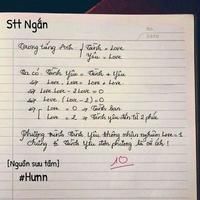 Stt Ngắn
Trong tiếng Anh { Tình = Love
Yêu = Love
Ta có: Tình Yêu = Tình + Yêu
⇔ Love . Love = Love + Love
⇔ Love . Love - 2 Love = 0
⇔ Love (Love - 2) = 0
⇔ [ Love = 0 → Tình bạn
Love = 2 → Tình yêu đến từ 2 phía
Phương trình Tình Yêu không nhận nghiệm Love = 1
Chứng tỏ Tình Yêu đơn phương là vô ích!
10
[Nguồn sưu tầm]
#Humn